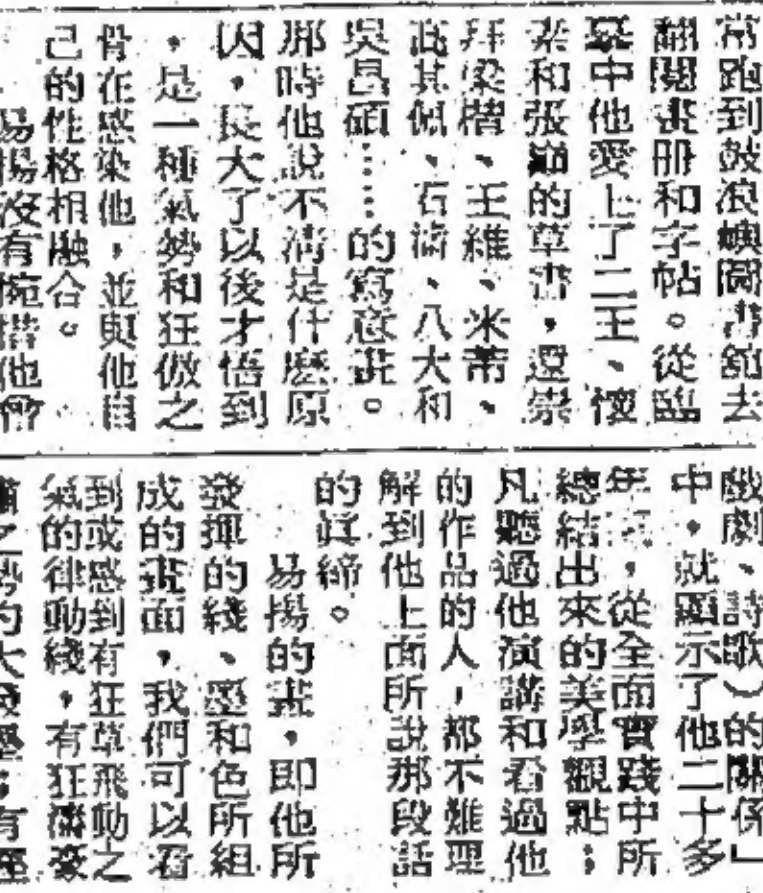 常跑到鼓浪嶼圖書館去
翻閱畫冊和字帖。從臨
摹中他愛上了二王、懷
素和張巔的草書,還崇
拜梁楷、王維、米芾、
高其佩、石濤、八大和
吳昌碩……的寫意畫。
那時他說不清是什麼原
因,長大了以後才悟到
,是一種氣勢和狂傲之
骨在感染他,並與他自
己的性格相融合。
易揚沒有掩他會
戲劇、詩歌)的關係」
中,就顯示了他二十多
年,從全面實踐中所
總結出來的美學觀點;
凡聽過他演講和看過他
的作品的人,都不難理
解到他上面所說那段話
的眞締。
易揚的畫,即他所
發揮的綫、墨和色所組
成的畫面,我們可以看
到或感到有狂草飛動之
氣的律動綫,有狂濤豪
之勢的大墨;有